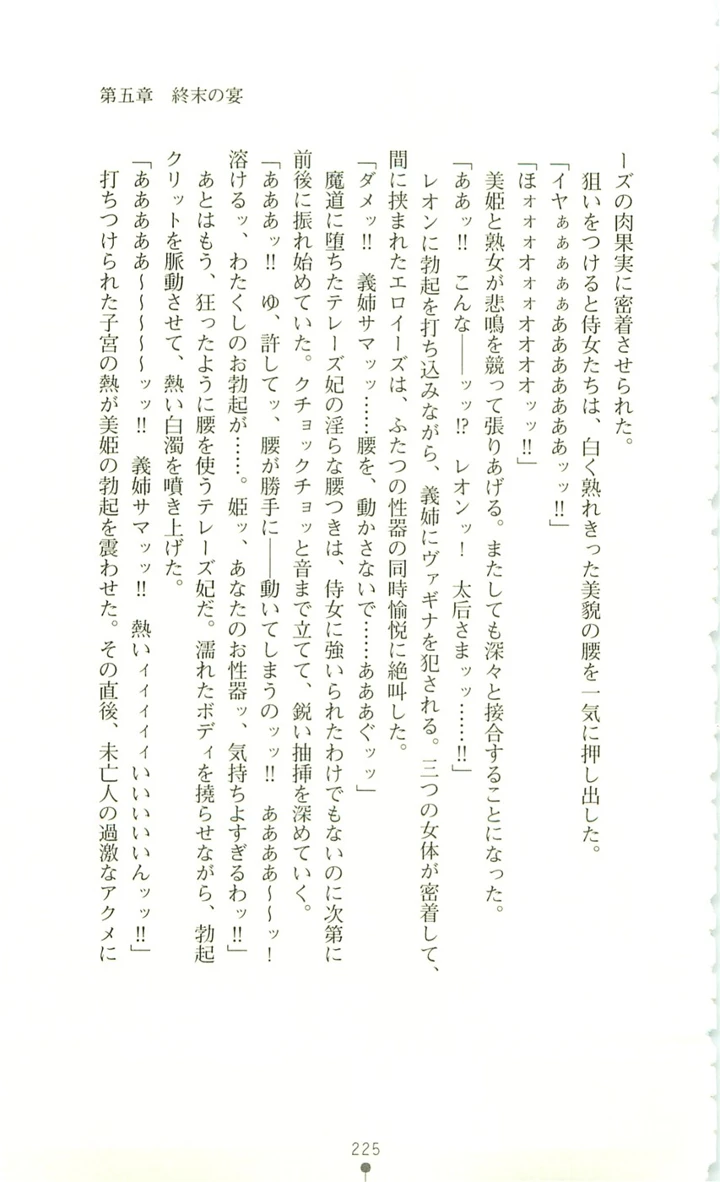 第五章　終末の宴
ーズの肉果実に密着させられた。
　狙いをつけると侍女たちは、白く熟れきった美貌の腰を一気に押し出した。
「イヤぁぁぁぁぁあああああああッッ!!」
「ほォォォオォォオオオオッッ!!」
　美姫と熟女が悲鳴を競って張りあげる。またしても深々と接合することになった。
「ああッ!!　こんな――ッッ!?　レオンッ！　太后さまッッ……!!」
　レオンに勃起を打ち込みながら、義姉にヴァギナを犯される。三つの女体が密着して、
間に挟まれたエロイーズは、ふたつの性器の同時愉悦に絶叫した。
「ダメッ!!　義姉サマッッ……腰を、動かさないで……あああぐッッ」
　魔道に堕ちたテレーズ妃の淫らな腰つきは、侍女に強いられたわけでもないのに次第に
前後に振れ始めていた。クチョックチョッと音まで立てて、鋭い抽挿を深めていく。
「あああッ!!　ゆ、許してッ、腰が勝手に――動いてしまうのッッ!!　ああああ～～ッ！
溶けるッ、わたくしのお勃起が……。姫ッ、あなたのお性器ッ、気持ちよすぎるわッ!!」
　あとはもう、狂ったように腰を使うテレーズ妃だ。濡れたボディを撓らせながら、勃起
クリットを脈動させて、熱い白濁を噴き上げた。
「あああああ～～～～～ッッ!!　義姉サマッッ!!　熱いィィィィィいいいいいんッッ!!」
　打ちつけられた子宮の熱が美姫の勃起を震わせた。その直後、未亡人の過激なアクメに
225